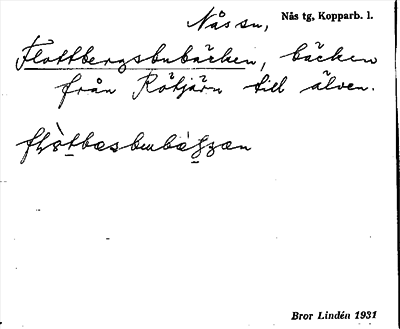 Nås sn,
Nås tg, Kopparb. l.
Flottbergsbubäcken, bäcken
från Rötjärn till älven.
Bror Lindén 1931